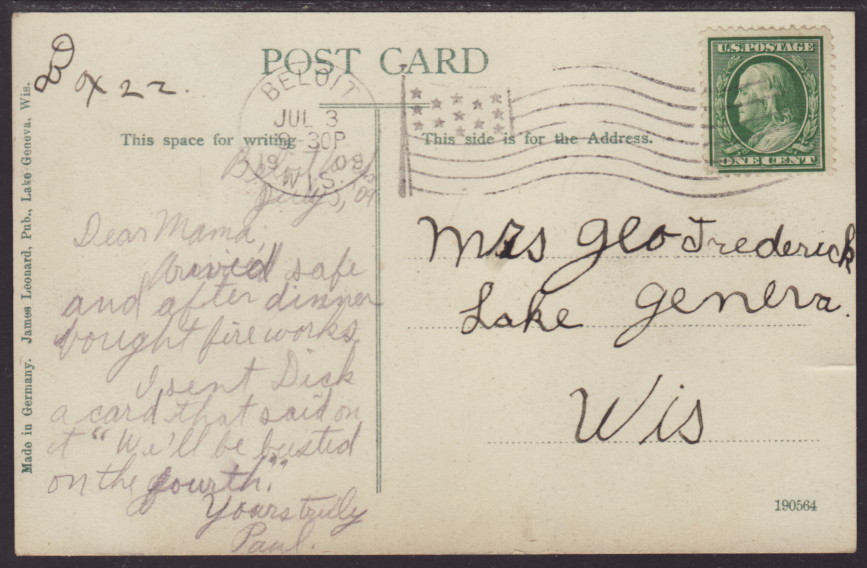 POST CARD
BELOIT
JUL 3
8-30P
1909
WIS.
U.S. POSTAGE
ONE CENT
This space for writing
This side is for the Address.
X 22.
Beloit, Wis
July 3, '09
Dear Mama,
Arrived safe
and after dinner
bought fireworks.
I sent Dick
a card that said on
it "We'll be busted
on the fourth."
Yours truly
Paul.
Mrs Geo Frederick
Lake Geneva.
Wis
190564
Made in Germany. James Leonard, Pub., Lake Geneva, Wis.